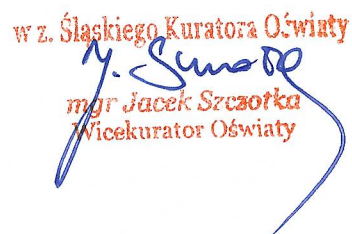 w z. Śląskiego Kuratora Oświaty
mgr Jacek Szczotka
Wicekurator Oświaty